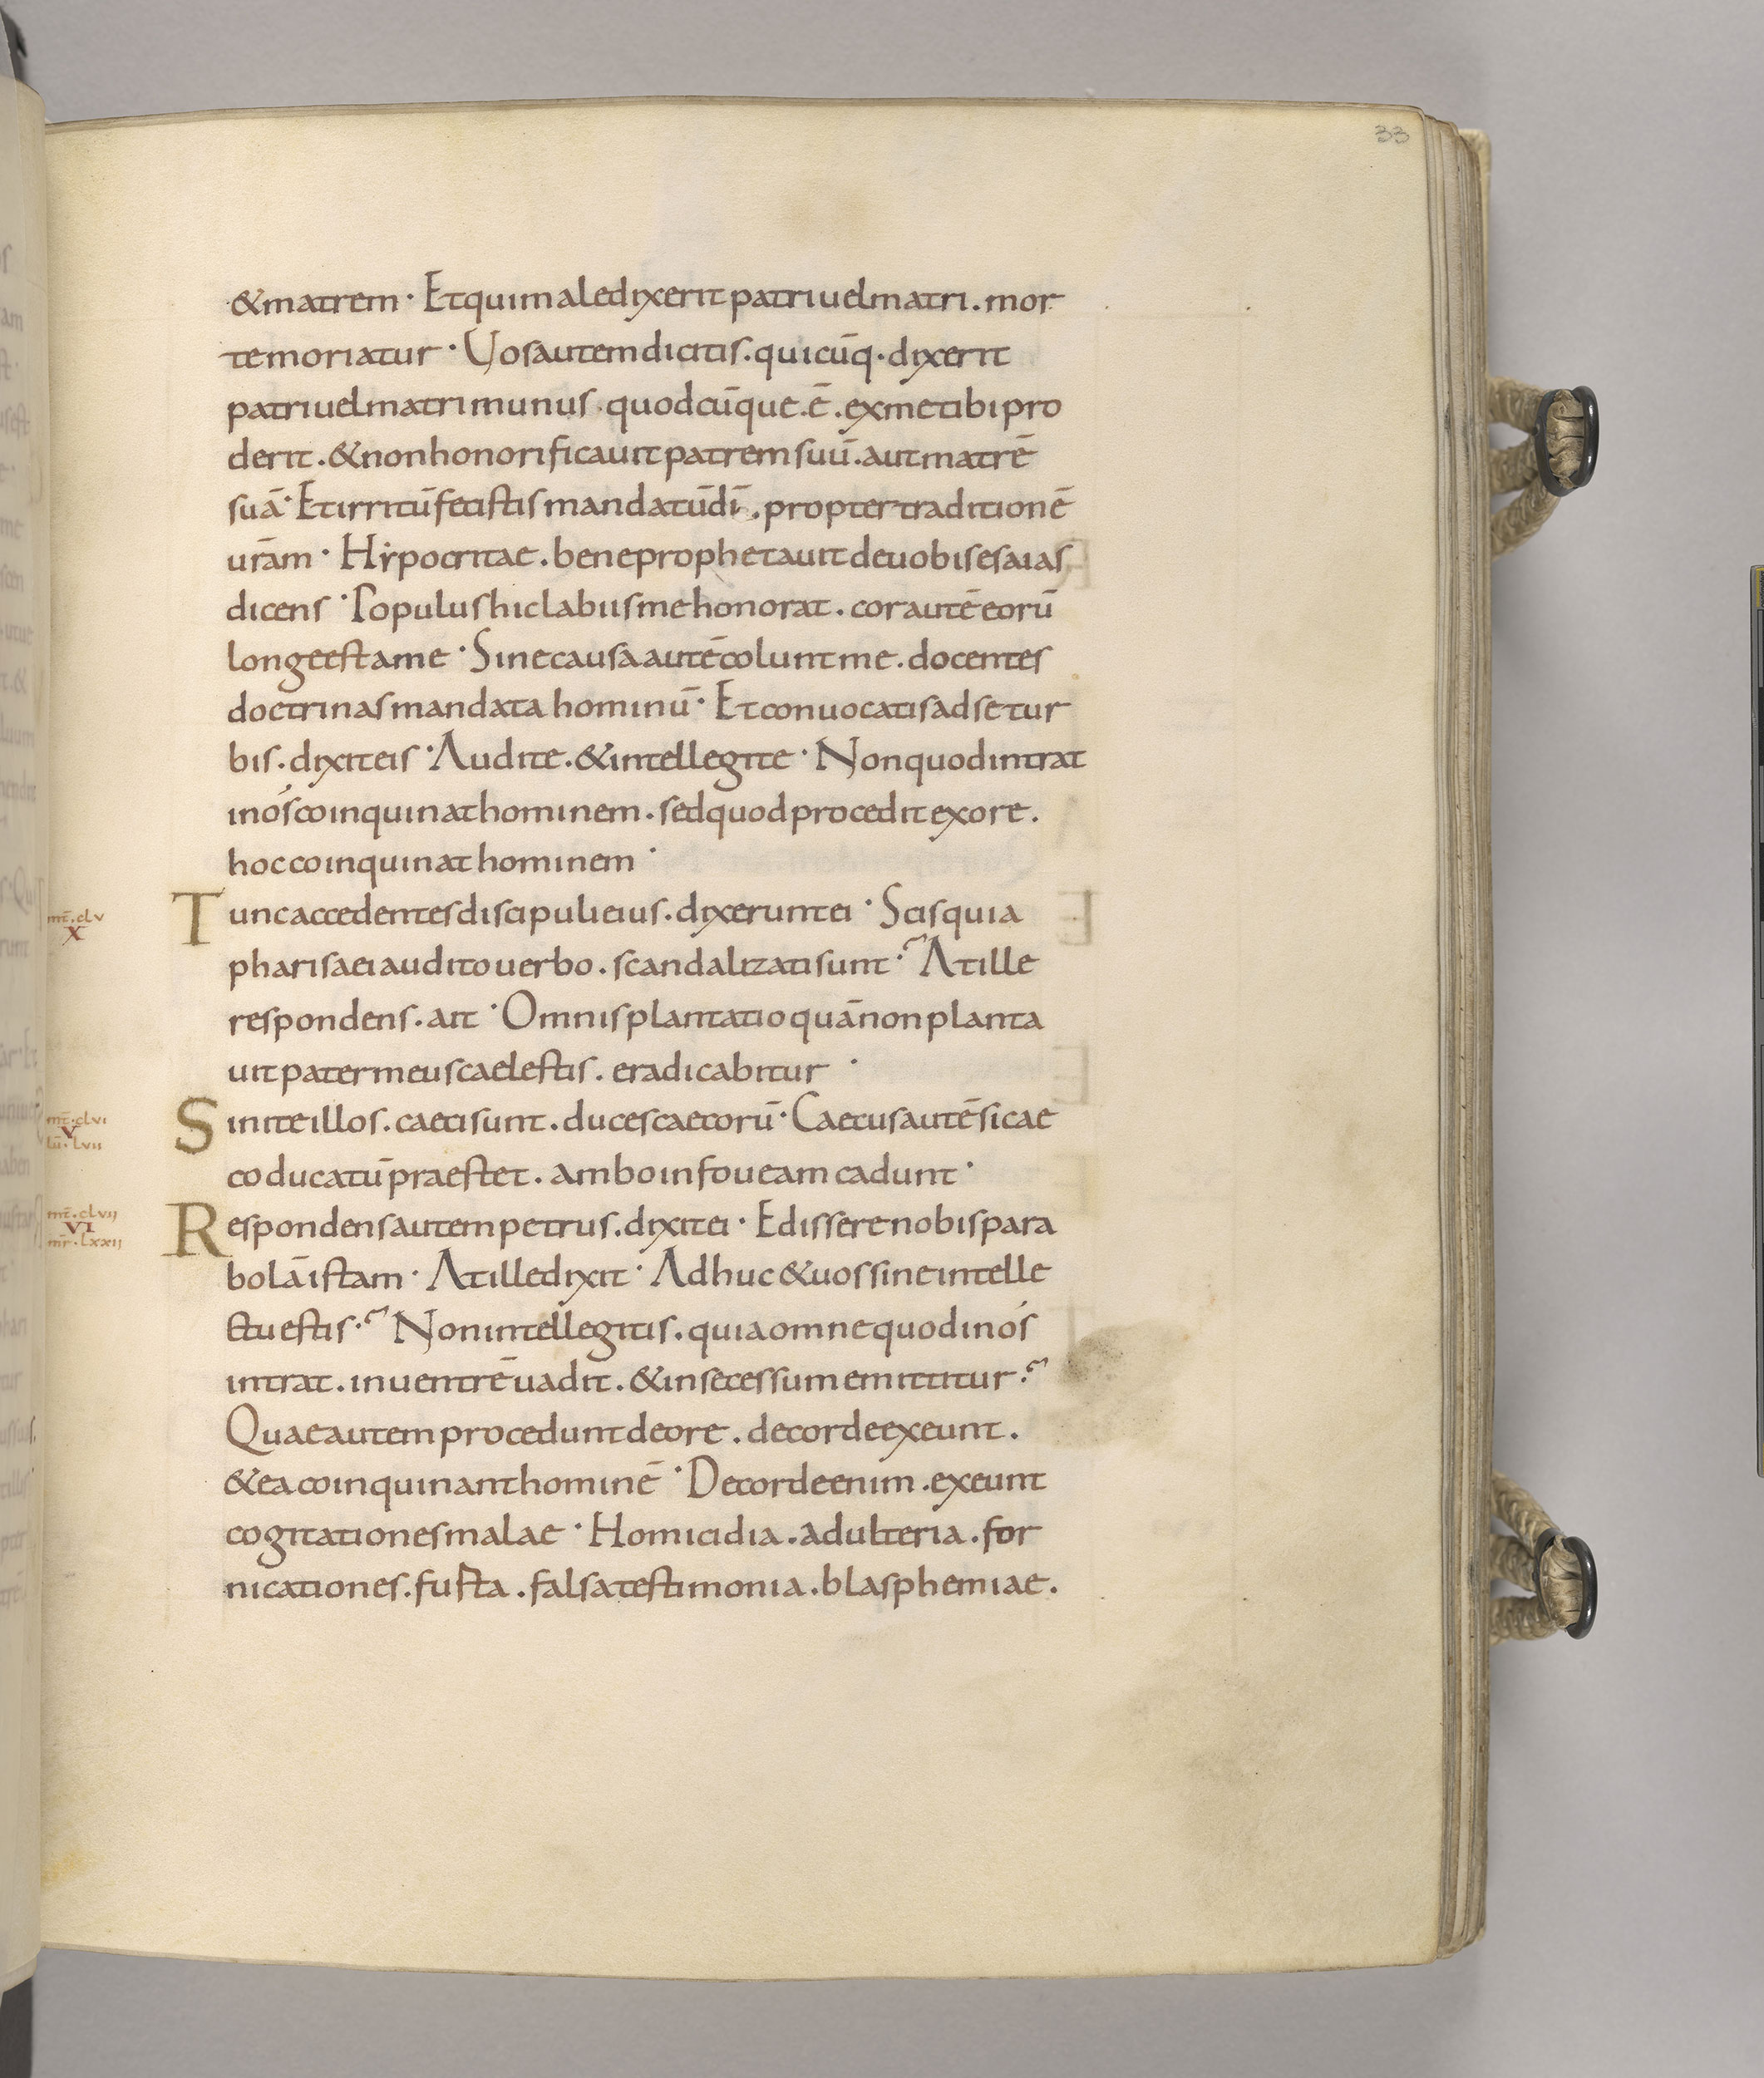 33
& matrem · Et qui maledixerit patri uel matri . mor
te moriatur · Uos autem dicitis . quicūq · dixerit
patri uel matri munus · quodcūque · ē . ex me tibi pro
derit . & non honorificauit patrem suū . aut matrē
suā · Et irritū fecistis mandatū dī . propter traditionē
urām · Hẏpocritae . bene prophetauit de uobis esaias
dicens · Populus hic labiis me honorat . cor autē eorū
longe est a me · Sine causa autē colunt me . docentes
doctrinas mandata hominū · Et conuocatis ad se tur
bis . dixit eis · Audite . & intellegite · Non quod intrat
in ós coinquinat hominem . sed quod procedit ex ore .
hoc coinquinat hominem ·
mt̄ . clv
X
Tunc accedentes discipuli eius . dixerunt ei · Scis quia
pharisaei audito uerbo . scandalizati sunt ? At ille
respondens . ait · Omnis plantatio quā non planta
uit pater meus caelestis . eradicabitur ·
mt̄ . clvi
V
lū . lvii
Sinite illos . caeci sunt . duces caecorū · Caecus autē si cae
co ducatū praestet . ambo in foueam cadunt ·
mt̄ . clvii
VI
mr̄ . lxxii
Respondens autem petrus . dixit ei · Edissere nobis para
bolā istam · At ille dixit · Adhuc & uos sine intelle
ctu estis ? Non intellegitis . quia omne quod in ós
intrat . in uentrē uadit . & in secessum emittitur ?
Quae autem procedunt de ore . de corde exeunt .
& ea coinquinant hominē · De corde enim . exeunt
cogitationes malae · Homicidia . adulteria . for
nicationes . furta . falsa testimonia . blasphemiae .